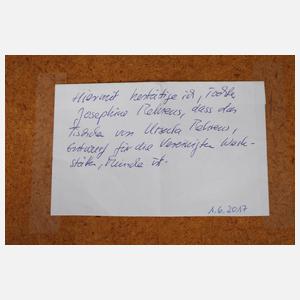 Hiermit bestätige ich, Tochter
Josephine Behrens, dass das
Tischchen von Ursula Behrens,
Entwurf für die Vereinigten Werk-
stätten, Munde ist.
1.6.2017